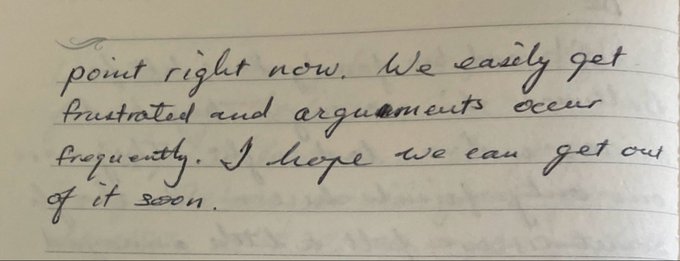 point right now. We easily get
frustrated and arguments occur
frequently. I hope we can get out
of it soon.